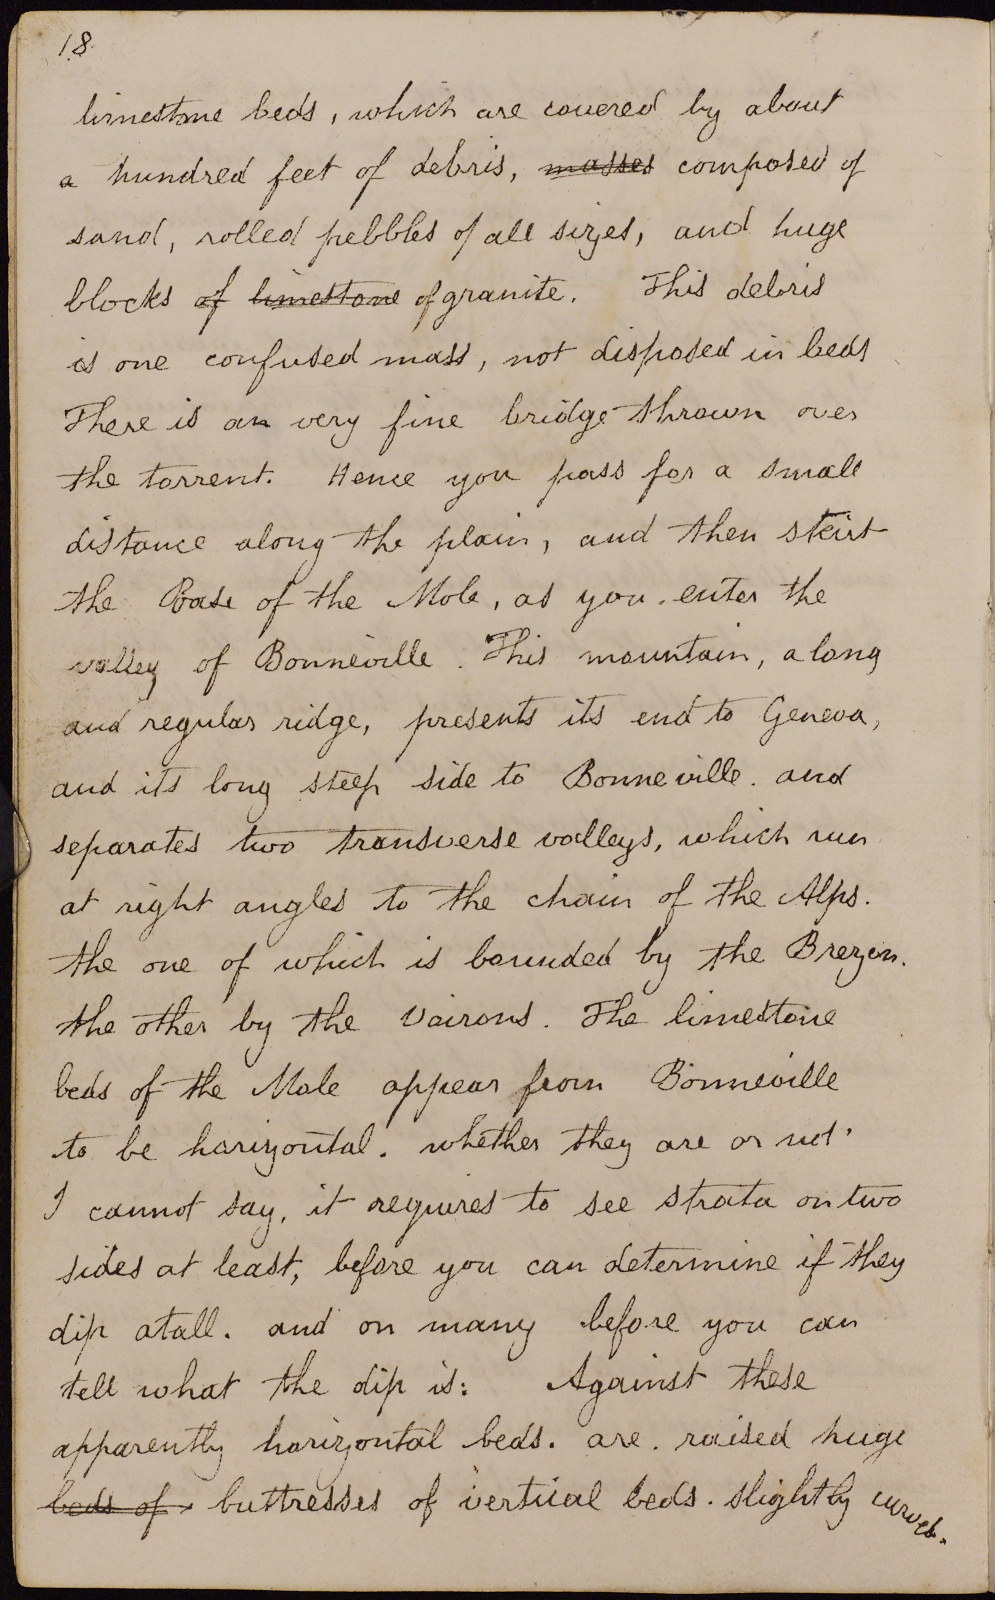 18
limestone beds, which are covered by about
a hundred feet of debris, masses composed of
sand, rolled pebbles of all sizes, and huge
blocks of limestone of granite. This debris
is one confused mass, not disposed in beds
There is an very fine bridge thrown over
the torrent. Hence you pass for a small
distance along the plain, and then skirt
the Base of the Mole, as you enter the
valley of Bonneville. This mountain, a long
and regular ridge, presents its end to Geneva,
and its long steep side to Bonneville. and
separates two transverse valleys, which run
at right angles to the chain of the Alps.
the one of which is bounded by the Brezon.
the other by the Voirons. The limestone
beds of the Mole appear from Bonneville
to be horizontal. whether they are or not
I cannot say, it requires to see strata on two
sides at least, before you can determine if they
dip atall. and on many before you can
tell what the dip is: Against these
apparently horizontal beds. are. raised huge
beds of buttresses of vertical beds. slightly curved.